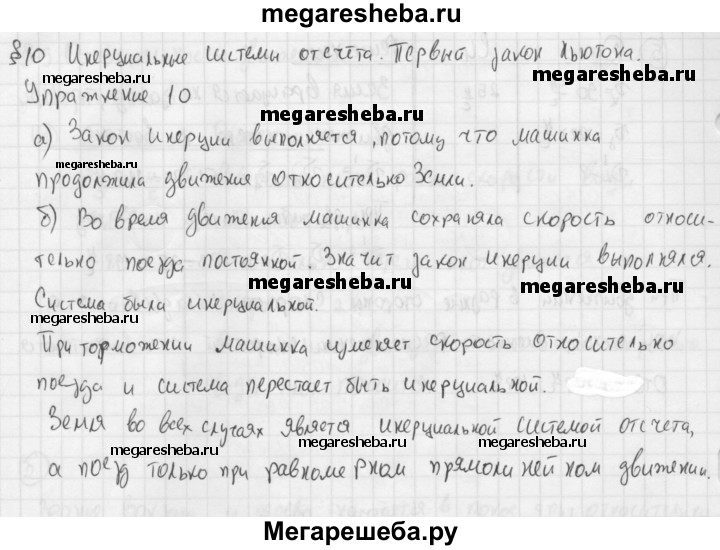 megaresheba.ru
§10 Инерциальные системы отсчёта. Первый закон Ньютона.
megaresheba.ru megaresheba.ru
Упражнение 10
megaresheba.ru
а) Закон инерции выполняется, потому что машинка
megaresheba.ru megaresheba.ru
продолжила движение относительно Земли.
megaresheba.ru
б) Во время движения машинка сохраняла скорость относи-
тельно поезда постоянной. Значит закон инерции выполнялся.
megaresheba.ru
Система была инерциальной.
megaresheba.ru megaresheba.ru
При торможении машинка изменяет скорость относительно
megaresheba.ru
поезда и система перестает быть инерциальной.
megaresheba.ru
Земля во всех случаях является инерциальной системой отсчета,
megaresheba.ru megaresheba.ru
а поезд только при равномерном прямолинейном движении.
megaresheba.ru
Мегарешеба.ру